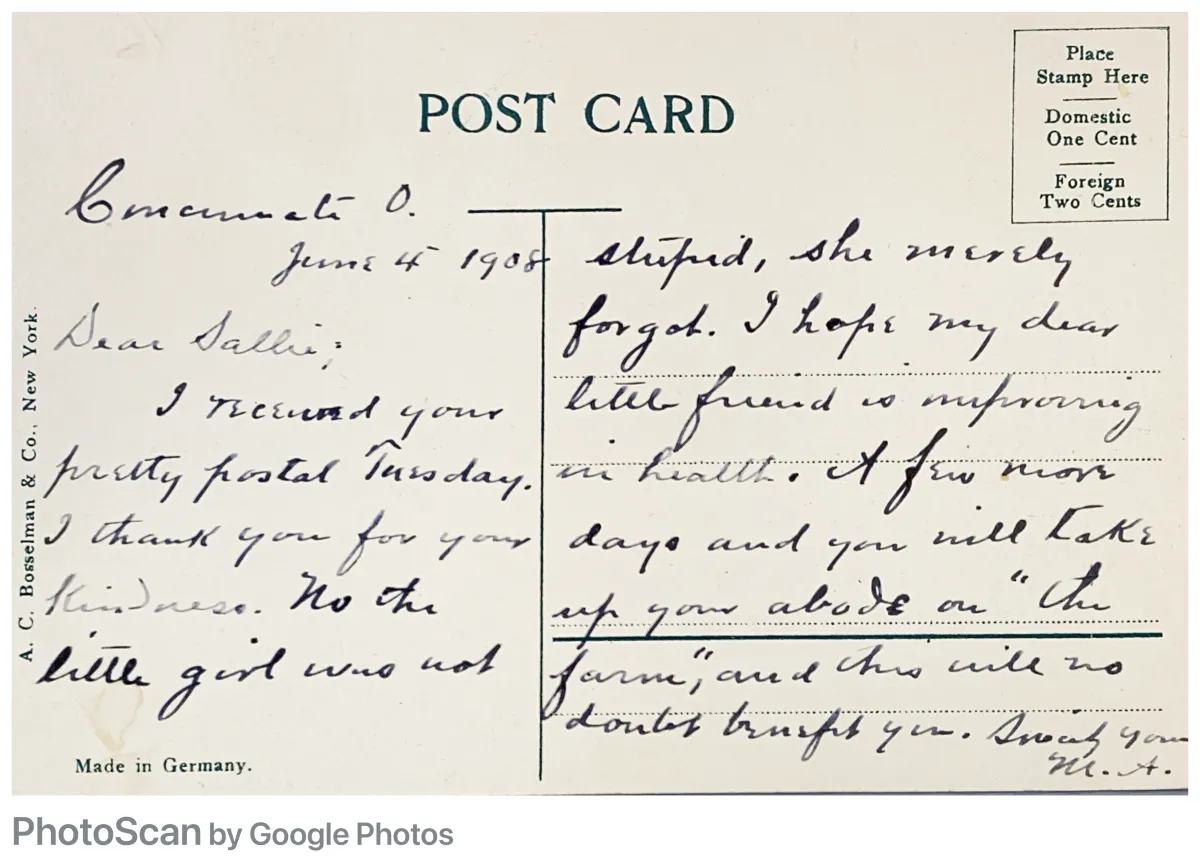 POST CARD
Place
Stamp Here
Domestic
One Cent
Foreign
Two Cents
Cincinnati O.
June 4 1908
Dear Sallie;
I received your
pretty postal Tuesday.
I thank you for your
kindness. No the
little girl was not
stupid, she merely
forgot. I hope my dear
little friend is improving
in health. A few more
days and you will take
up your abode on "the
farm", and this will no
doubt benefit you. Sincerely your
M. A.
A. C. Bosselman & Co., New York.
Made in Germany.
PhotoScan by Google Photos